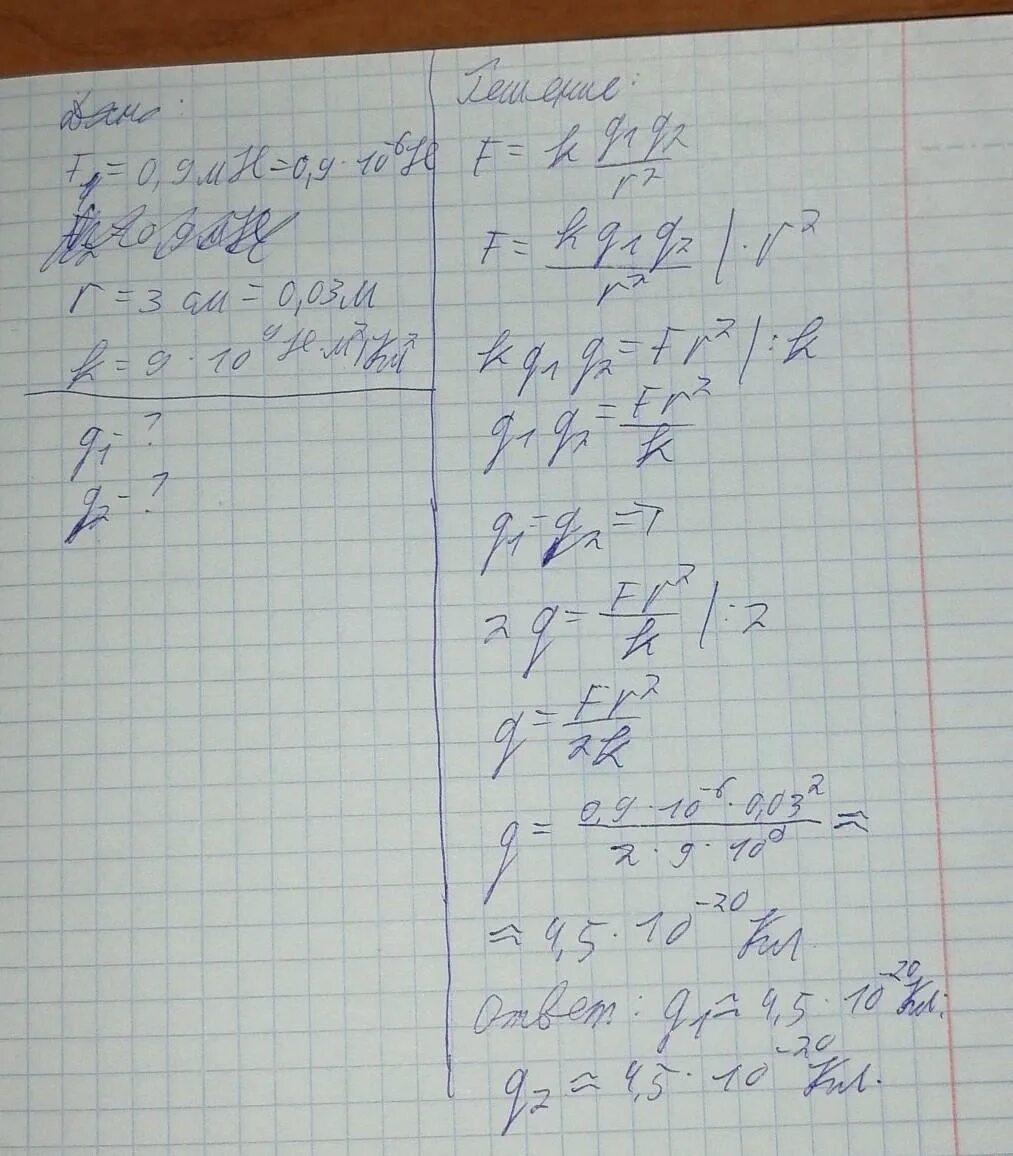 Дано:
F = 0,9 мН = 0,9 · 10⁻⁶ Н
r = 3 см = 0,03 м
k = 9 · 10⁹ Н·м²/Кл²
q₁ - ?
q₂ - ?
Решение:
F = k q₁ q₂ / r²
F = k q₁ q₂ / r² | · r²
k q₁ q₂ = F r² | : k
q₁ q₂ = F r² / k
q₁ = q₂ =>
2 q = F r² / k | : 2
q = F r² / 2k
q = 0,9 · 10⁻⁶ · 0,03² / 2 · 9 · 10⁹ ≈
≈ 4,5 · 10⁻²⁰ Кл.
Ответ: q₁ ≈ 4,5 · 10⁻²⁰ Кл;
q₂ ≈ 4,5 · 10⁻²⁰ Кл.